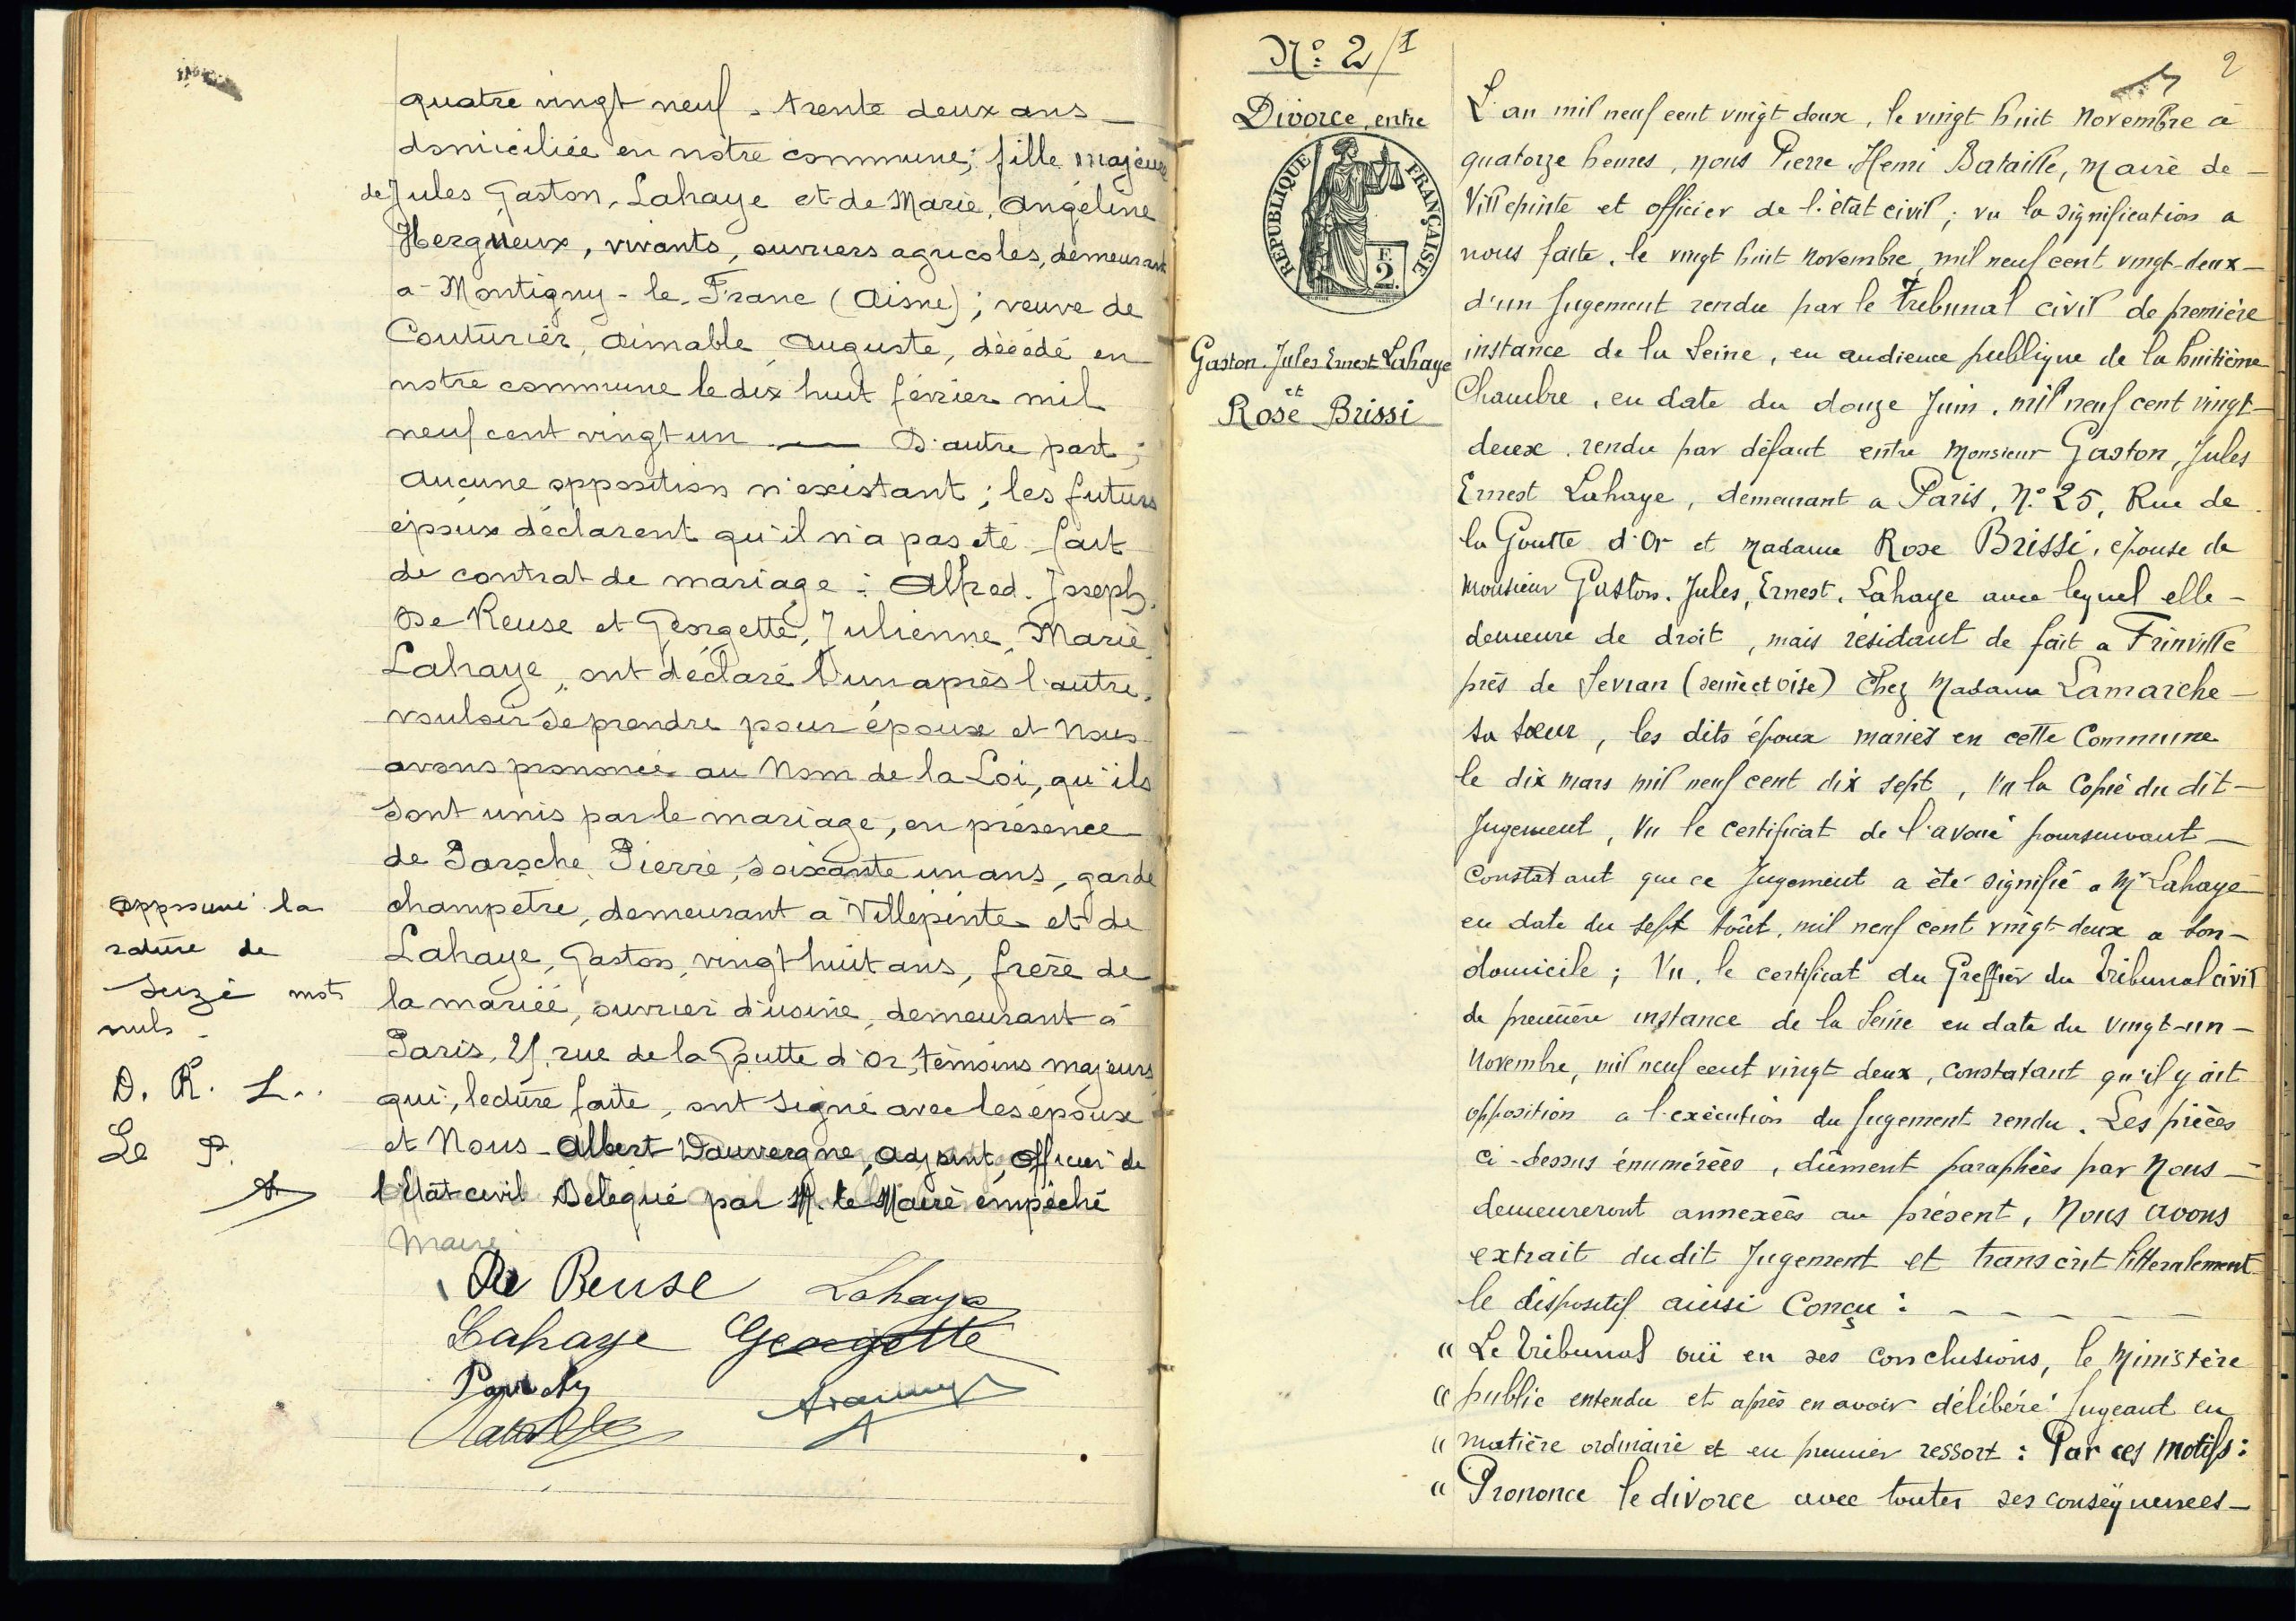 quatre vingt neuf, trente deux ans _
domiciliée en nôtre commune; fille majeure
de Jules Gaston, Lahaye et de Marie, Angéline
Hergueux, vivants, ouvriers agricoles, demeurant
a Montigny-le-Franc (Aisne); veuve de
Couturier, Aimable Auguste, décédé en
notre commune le dix huit février mil
neuf cent vingt un ___ D'autre part;
Aucune opposition n'existant; les futurs
époux déclarent qu'il n'a pas été fait
de contrat de mariage: Alfred. Joseph.
De Reuse et Georgette, Julienne, Marie,
Lahaye, ont déclaré l'un après l'autre,
vouloir se prendre pour époux et Nous
avons prononcé au Nom de la Loi, qu'ils
sont unis par le mariage, en présence
de Parsche Pierre, soixante un ans, garde
champetre, demeurant a Villepinte et de
Lahaye, Gaston, vingt huit ans, frère de
la mariée, ouvrier d'usine, demeurant à
Paris, rue de la Goutte d'or, témoins majeurs
qui, lecture faite, ont signé avec les époux
et Nous - Albert Dauvergne, adjoint, officier de
l'état civil Délégué par M. le Maire empêché
Maire
approuvé la
rature de
seize mots
nuls -
D. R. L..
Le P.
De Reuse Lahaye
Lahaye Georgette
N° 2/1
Divorce, entre
REPUBLIQUE FRANÇAISE
F.
2.
Gaston. Jules Ernest Lahaye
et
Rose Brissi
2
L'an mil neuf cent vingt deux, le vingt huit Novembre à
quatorze heures, nous Pierre Henri Bataille, Maire de _
Villepinte et officier de l'état civil; vu la signification a
nous faite, le vingt huit novembre, mil neuf cent vingt-deux _
d'un Jugement rendu par le Tribunal civil de première
instance de la Seine, en audience publique de la huitième
Chambre, en date du douze Juin, mil neuf cent vingt-
deux, rendu par défaut entre Monsieur Gaston, Jules
Ernest Lahaye, demeurant a Paris, N° 25, Rue de
la Goutte d'Or et Madame Rose Brissi, épouse de
Monsieur Gaston. Jules, Ernest. Lahaye avec lequel elle -
demeure de droit, mais résidant de fait a Frinville
près de Sevran (seine et oise) Chez Madame Lamarche _
sa sœur, les dits époux mariés en cette Commune
le dix mars mil neuf cent dix sept, Vu la Copie du dit _
Jugement, Vu le certificat de l'avoué poursuivant _
Constatant que ce Jugement a été signifié a Mr Lahaye
en date du sept Août, mil neuf cent vingt-deux a son -
domicile; Vu, le certificat du Greffier du Tribunal civil
de première instance de la Seine en date du vingt-un -
Novembre, mil neuf cent vingt deux, constatant qu'il y ait
opposition a l'exécution du Jugement rendu. Les pièces
ci-dessus énumérées, dûment paraphées par Nous _
demeureront annexées au présent, Nous avons
extrait dudit Jugement et transcrit littéralement
le dispositif ainsi Conçu: _ _ _ _ _
" Le Tribunal ouï en ses conclusions, le Ministère
" public entendu et après en avoir délibéré Jugeant en
" matière ordinaire et en premier ressort: Par ces motifs:
" Prononce le divorce avec toutes ses conséquences _